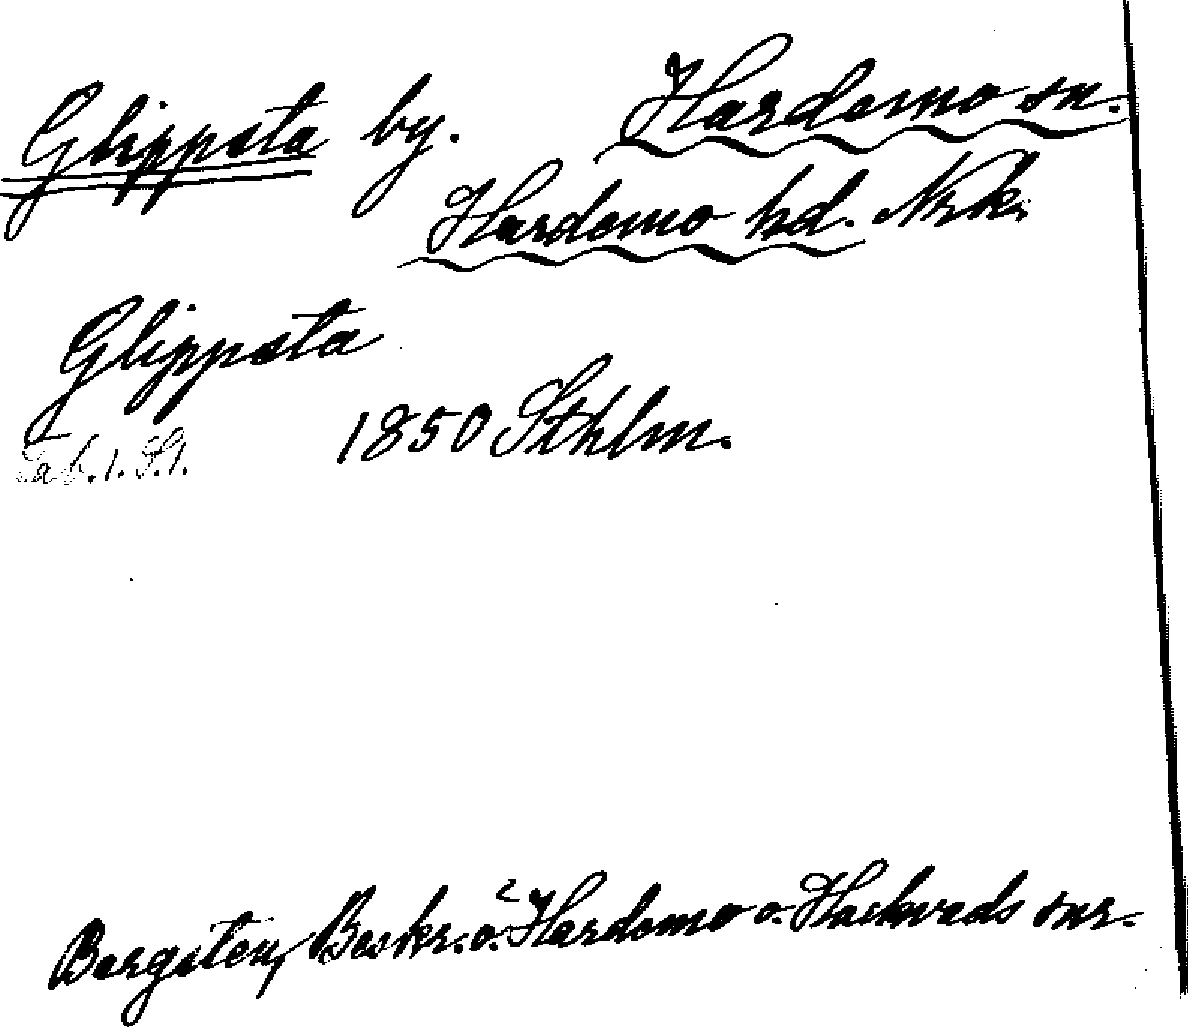 Glippsta by. Hardemo sn.
Hardemo hd. Nrk.
Glippsta
1850 Sthlm.
Tab. 1. S. 1.
Bergsten, Beskr. ö. Hardemo o. Hackvads snr.